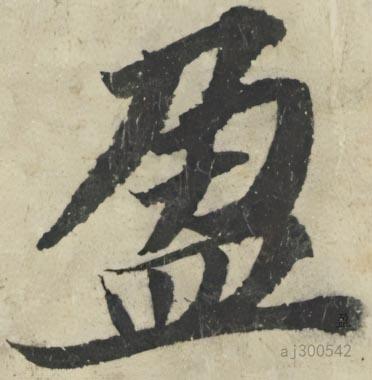 盈
aj300542